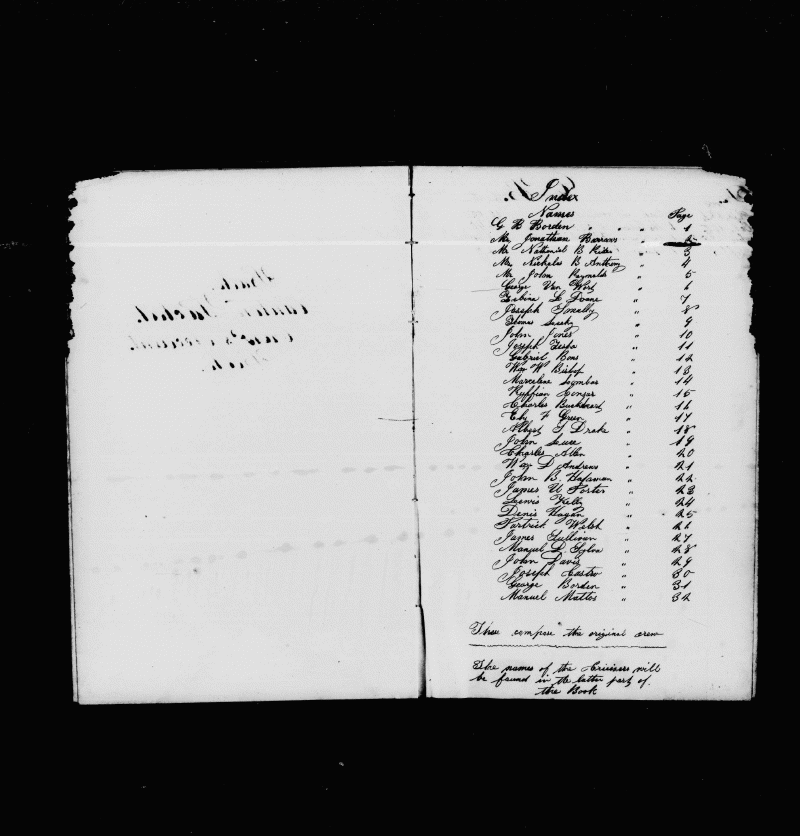 Index
Names Page
G B Borden " " " 1
Mr Jonathan Barrows " 2
Mr Nathaniel B " 3
Mr Nicholas B Anthony " 4
Mr John Reynolds " 5
George Van Wort " 6
L Doane " 7
Joseph Smally " 8
Thomas " 9
John Jones " 10
Joseph " 11
Gabriel Bons " 12
Wm W Bishop " 13
Marcelene Lombas " 14
" 15
Charles " 16
Eby F Green " 17
Albert T Drake " 18
John " 19
Charles Allen " 20
Wm D Andrews " 21
John B. " 22
James W Forter " 23
Lewis Kelly " 24
Denis Hagan " 25
Partrick Welch " 26
James Sullivan " 27
Manuel D Sylva " 28
John Davis " 29
Joseph Castro " 30
George Borden " 31
Manuel Mattos " 32
These compose the original crew
The names of the Cruisers will
be found in the latter part of
the Book